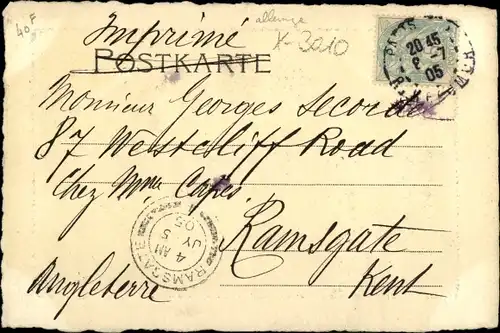 40 F
allemagne
K-3210
Imprimé
POSTKARTE
PARIS
20 45
8 -7
05
Monsieur Georges Lecordier
87 Westcliff Road
Chez Mme Capes
Ramsgate
Kent
Angleterre
RAMSGATE
4 AM
JY 5
05